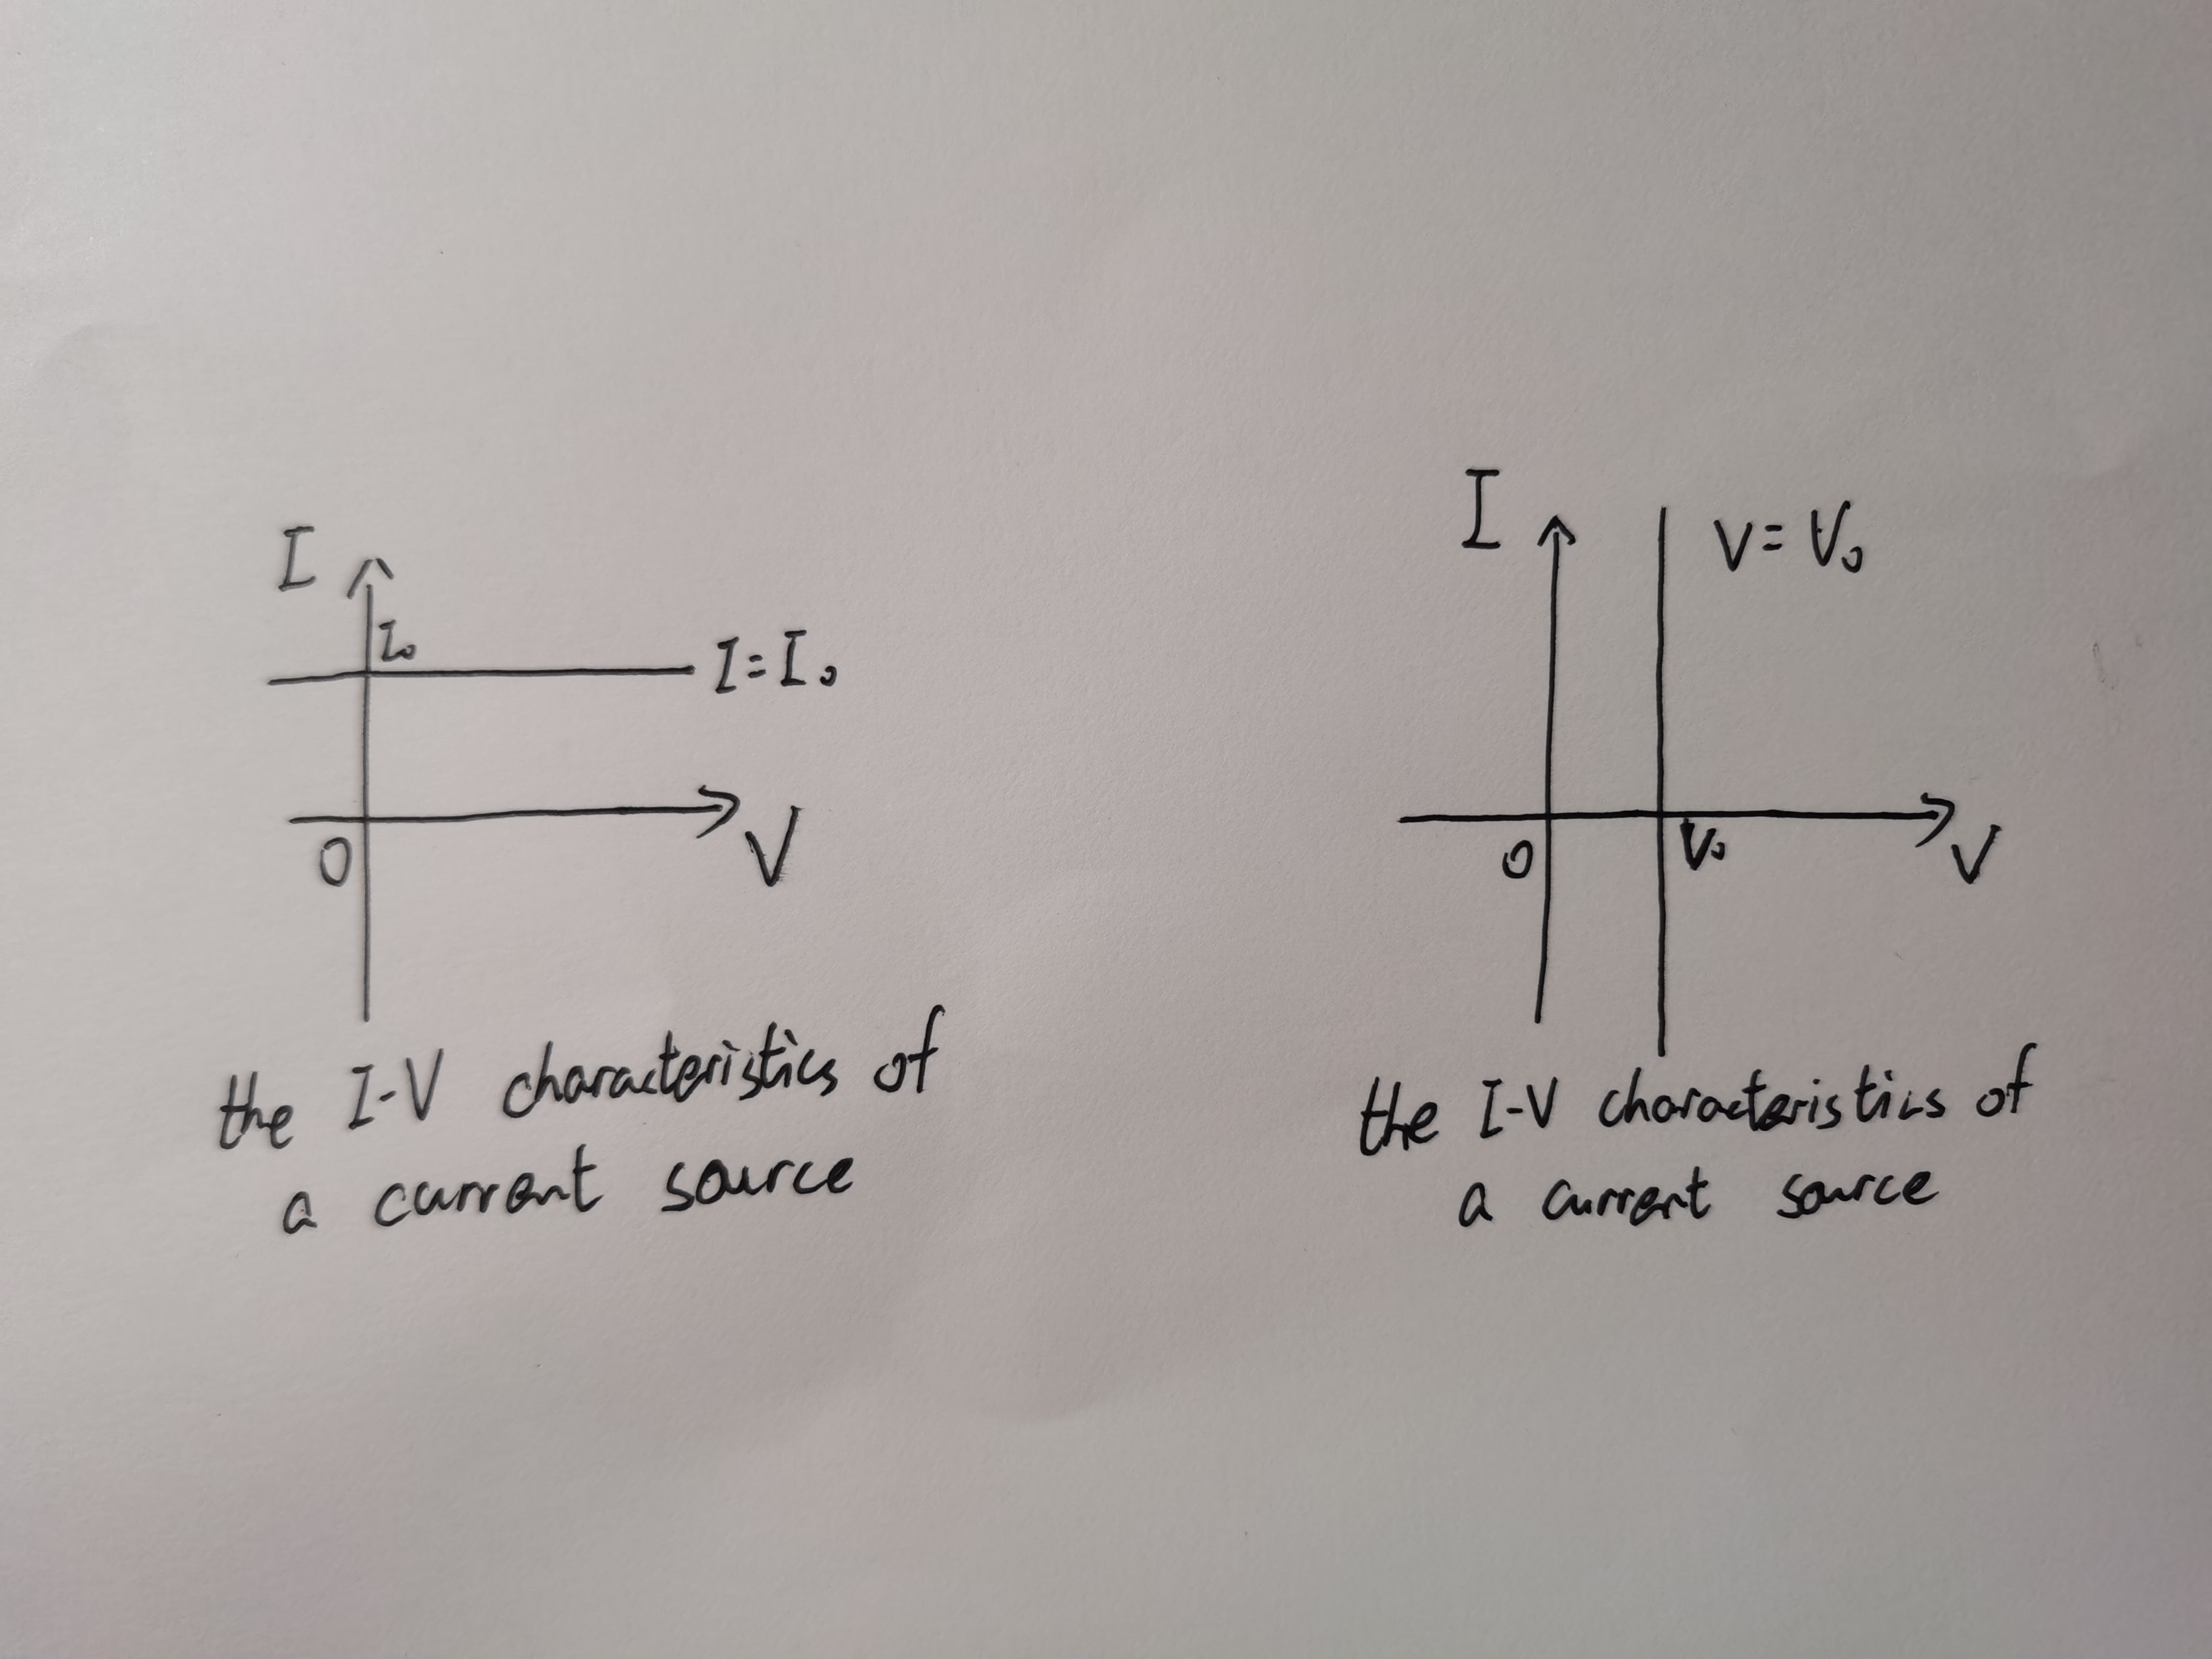 I
I₀
I=I₀
O
V
the I-V characteristics of
a current source
I
V=V₀
O
V₀
V
the I-V characteristics of
a current source